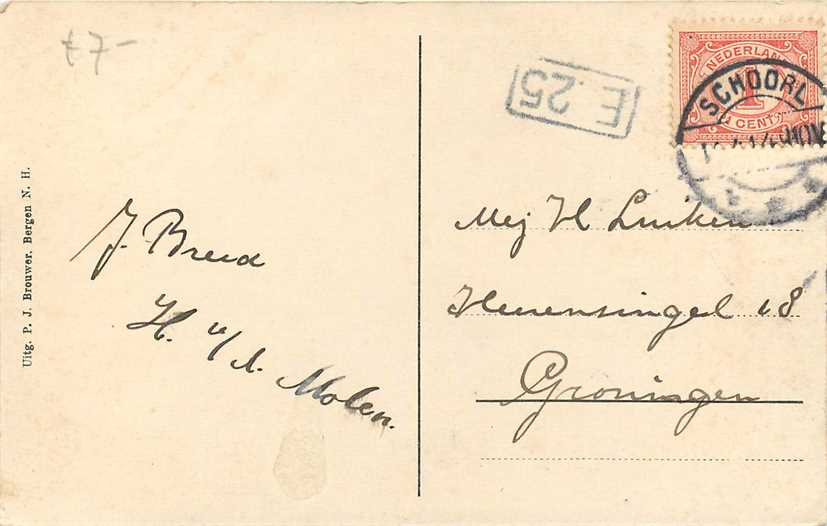 £ 7-
Uitg. P. J. Brouwer, Bergen N. H.
J. Breed
H. v/d. Molen.
E. 25
NEDERLAND
1
CENT
SCHOORL
Mej H Luiken
Heerensingel 18
Groningen